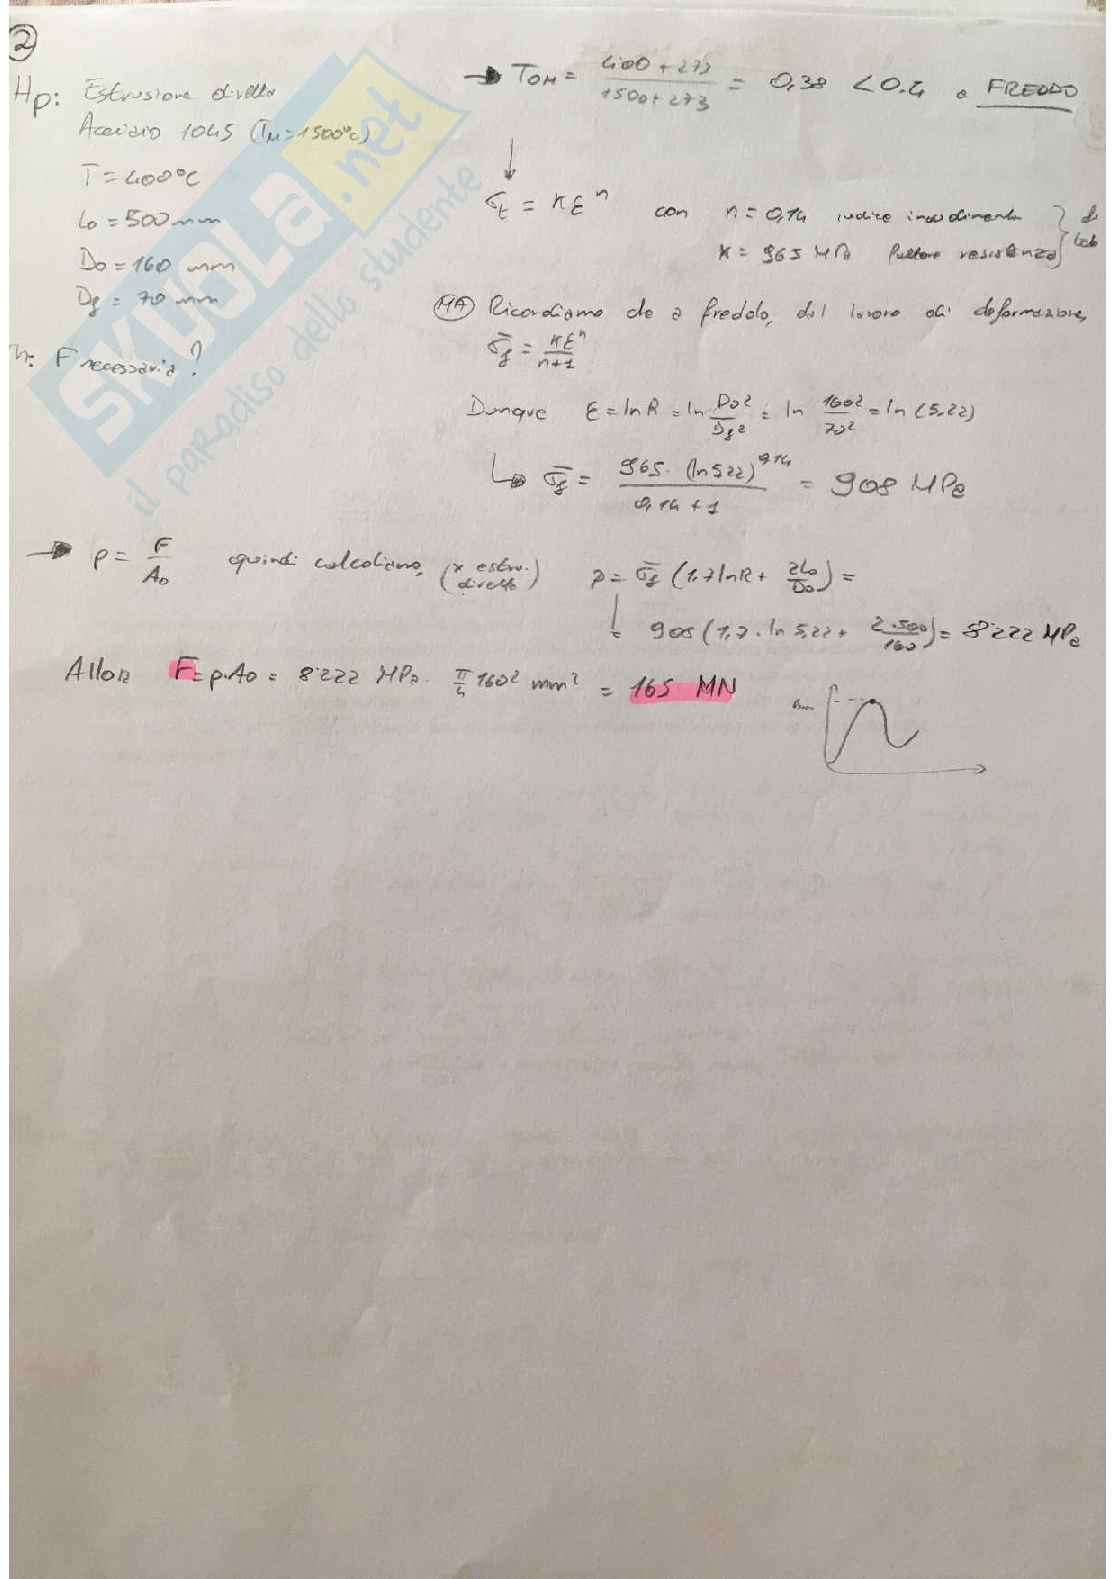 2
Hp: Estrusione diretta
Acciaio 1045 (TM=1500°C)
T=400°C
L0=500mm
D0=160 mm
Df = 70 mm
F necessaria?
→ TOM = (400+273)/(1500+273) = 0,38 <0.4 a FREDDO
↓
σt = Kεⁿ con n=0,14 indice incrudimento
K=965 MPa fattore resistenza
MA Ricordiamo che a freddo, dal lavoro di deformazione,
σ̄f = Kεⁿ/(n+1)
Dunque ε=lnR=ln D0²/Df² = ln 160²/70² = ln (5.22)
↳ σ̄f = 965·(ln5.22)^0,14/(0,14+1) = 908 MPa
→ p= F/A0 quindi calcoliamo, (x estru. diretta) p= σ̄f (1,7lnR+ 2L0/D0)=
= 908(1,7·ln5,22+ 2·500/160)=8'222 MPa
Allora F=p·A0= 8'222 MPa· π/4 160² mm² = 165 MN
SKUOLA.net
il paradiso dello studente